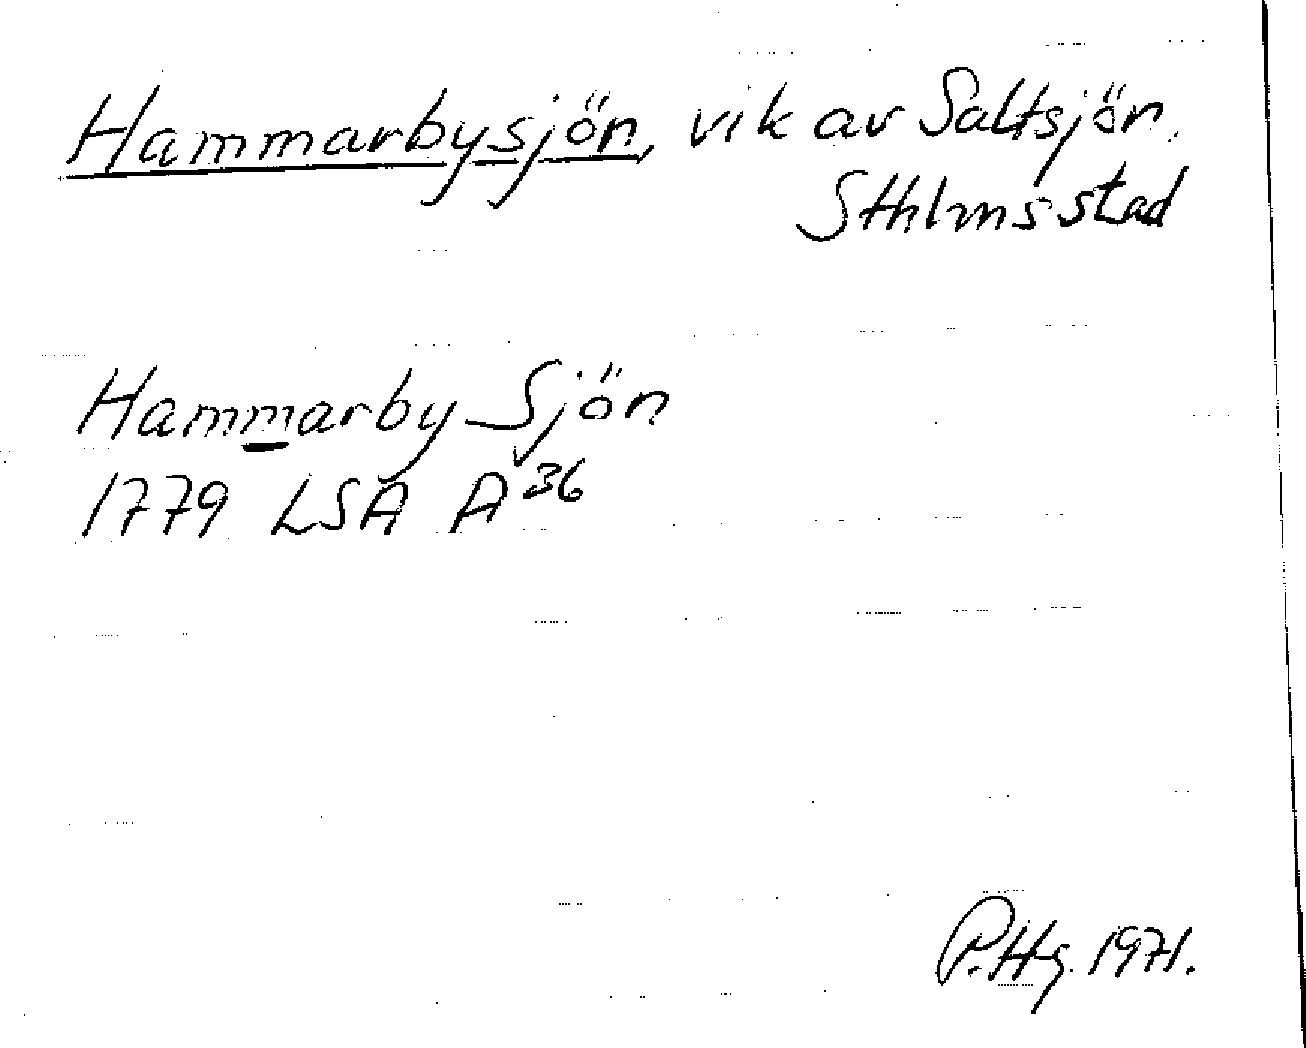 Hammarbysjön, vik av Saltsjön.
Sthlms stad
Hammarby Sjön
1779 LSA A 36
P.Hg. 1971.